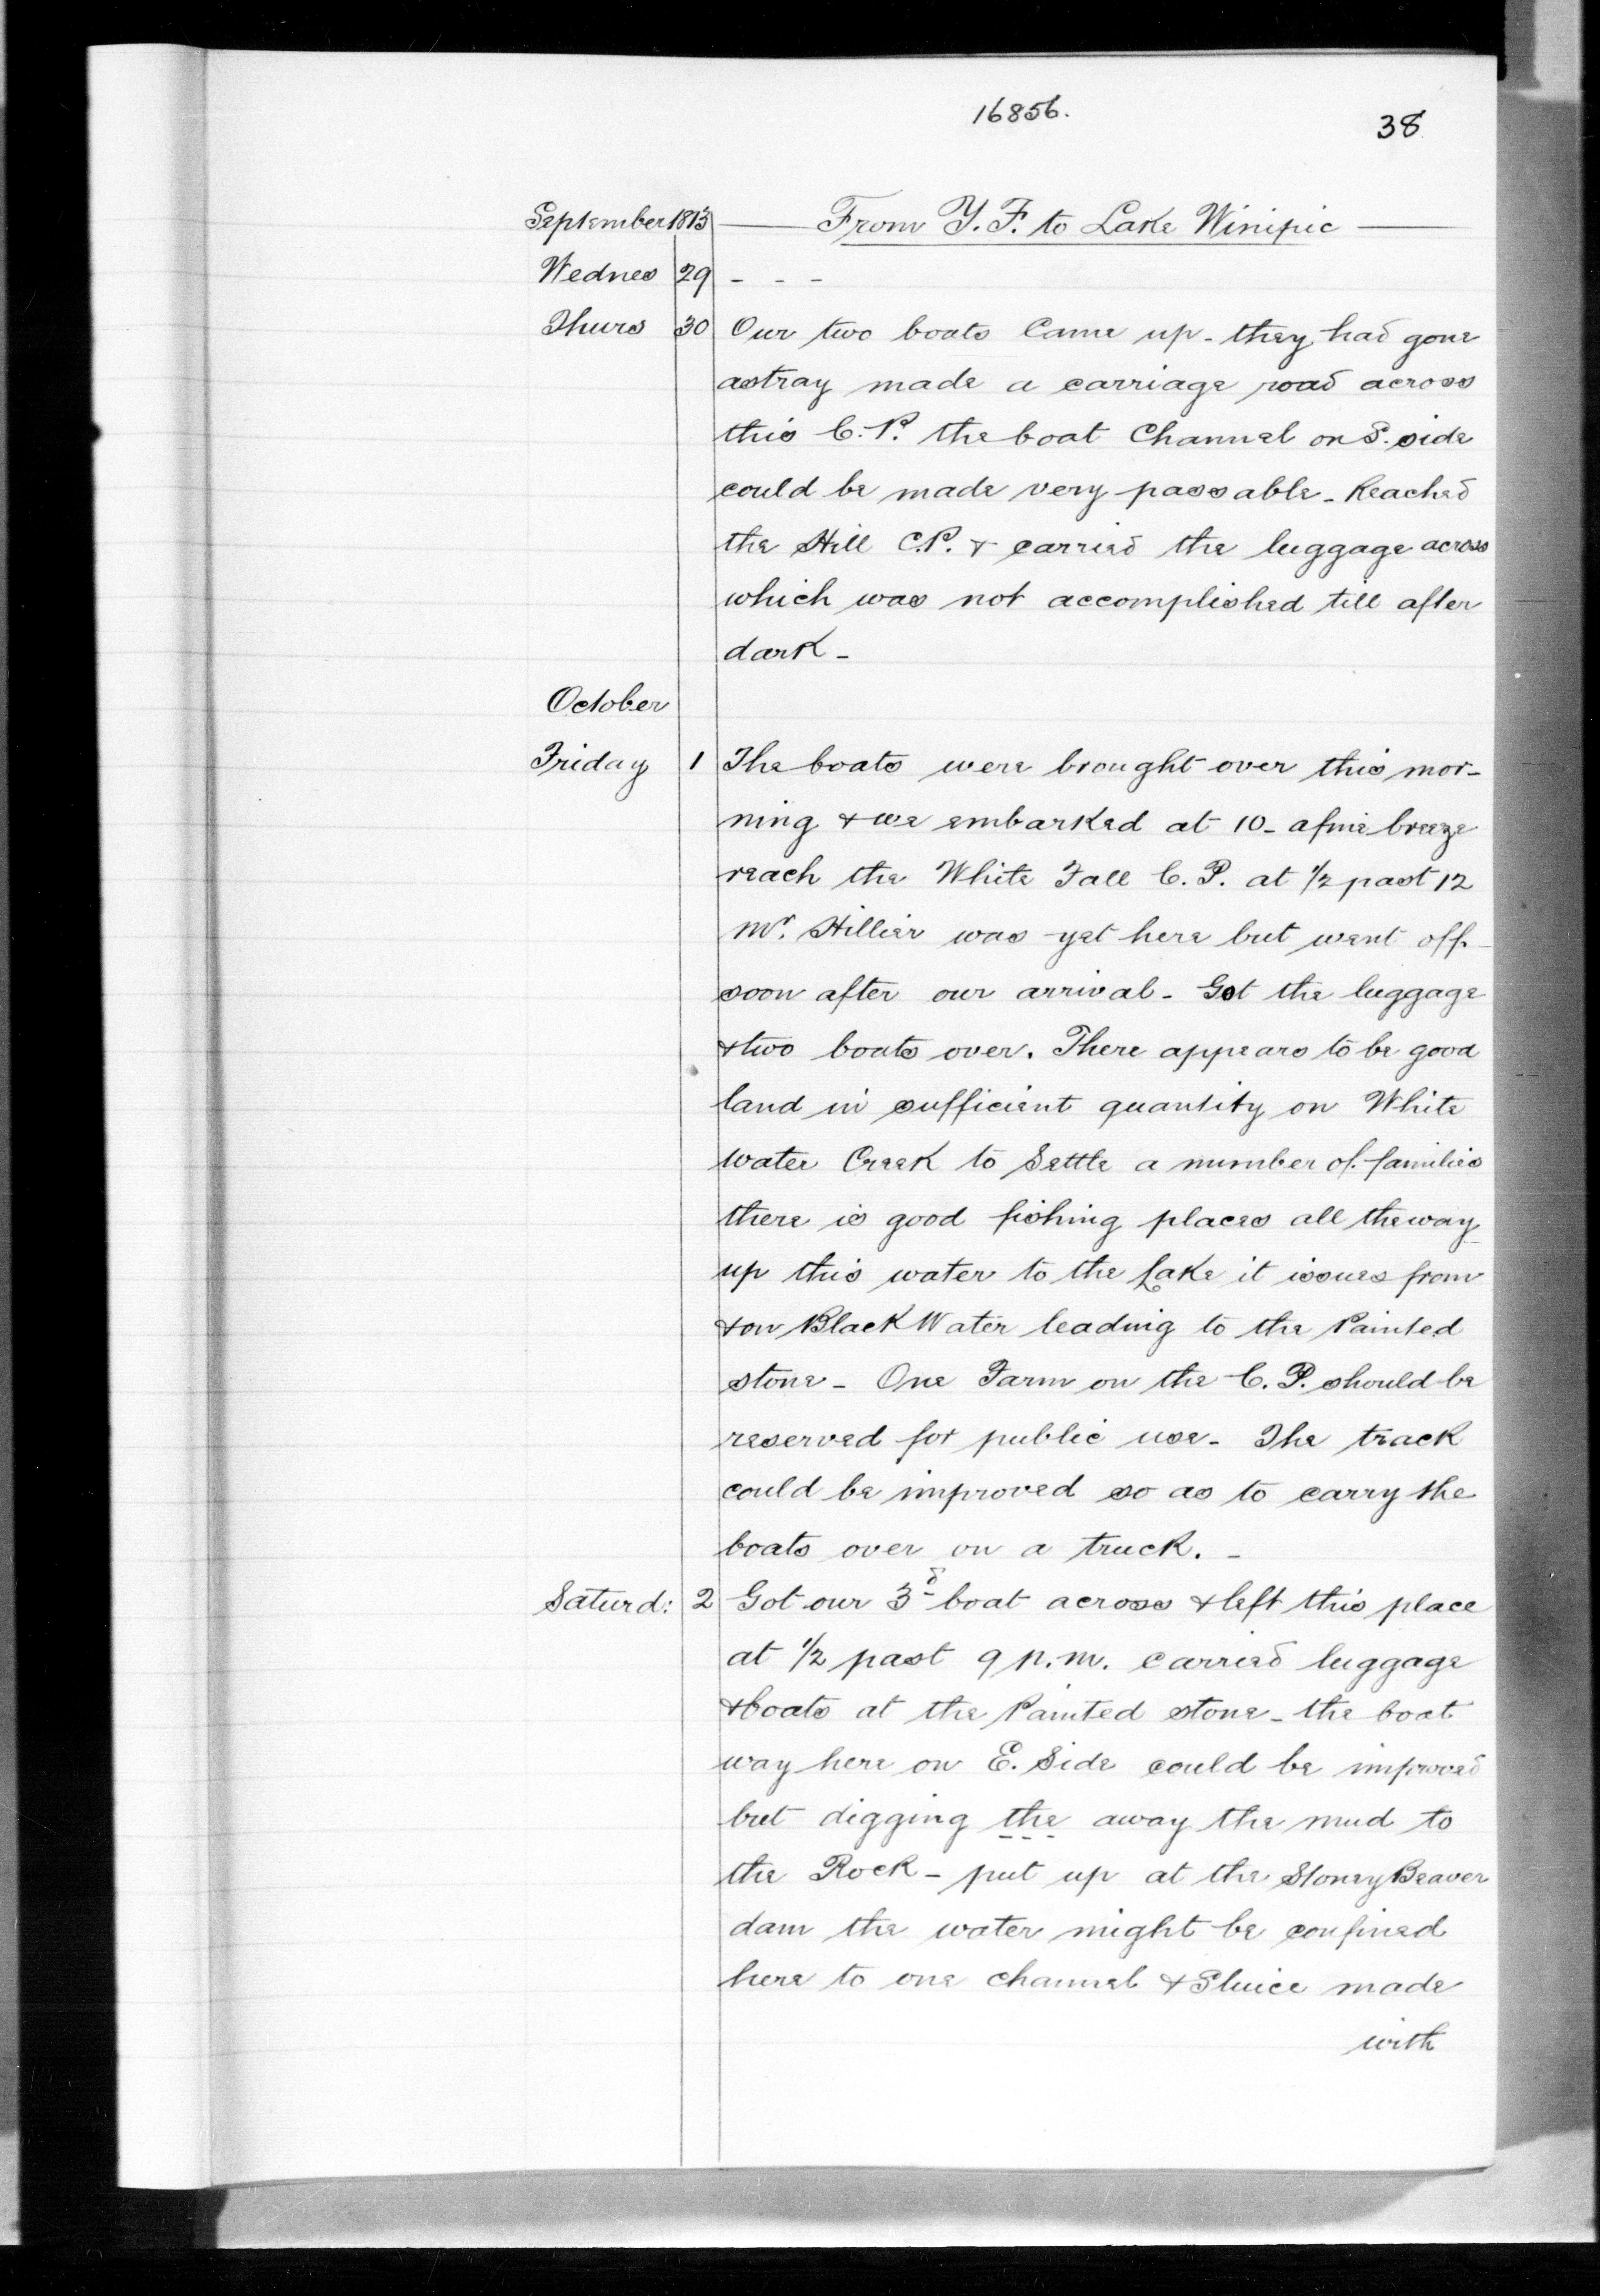 16856.
38
September 1813 From Y. F. to Lake Winipic
Wednes 29 - - -
Thurs 30 Our two boats Came up - they had gone
astray made a carriage road across
this C. P. the boat Channel on S. side
could be made very passable - Reached
the Hill C.P. & carried the luggage across
which was not accomplished till after
dark -
October
Friday 1 The boats were brought over this mor-
ning & we embarked at 10 - a fine breeze
reach the White Fall C. P. at 1/2 past 12
Mr. Hillier was yet here but went off -
soon after our arrival - Got the luggage
& two boats over. There appears to be good
land in sufficient quantity on White
Water Creek to Settle a number of families
there is good fishing places all the way
up this water to the Lake it issues from
& on Black Water leading to the Painted
stone - One Farm on the C. P. should be
reserved for public use - The track
could be improved so as to carry the
boats over on a truck. -
Saturd: 2 Got our 3d boat across & left this place
at 1/2 past 9 p.m. carried luggage
& boats at the Painted stone - the boat
way here on E. Side could be improved
but digging the away the mud to
the Rock - put up at the Stoney Beaver
dam the water might be confined
here to one channel & Sluice made
with